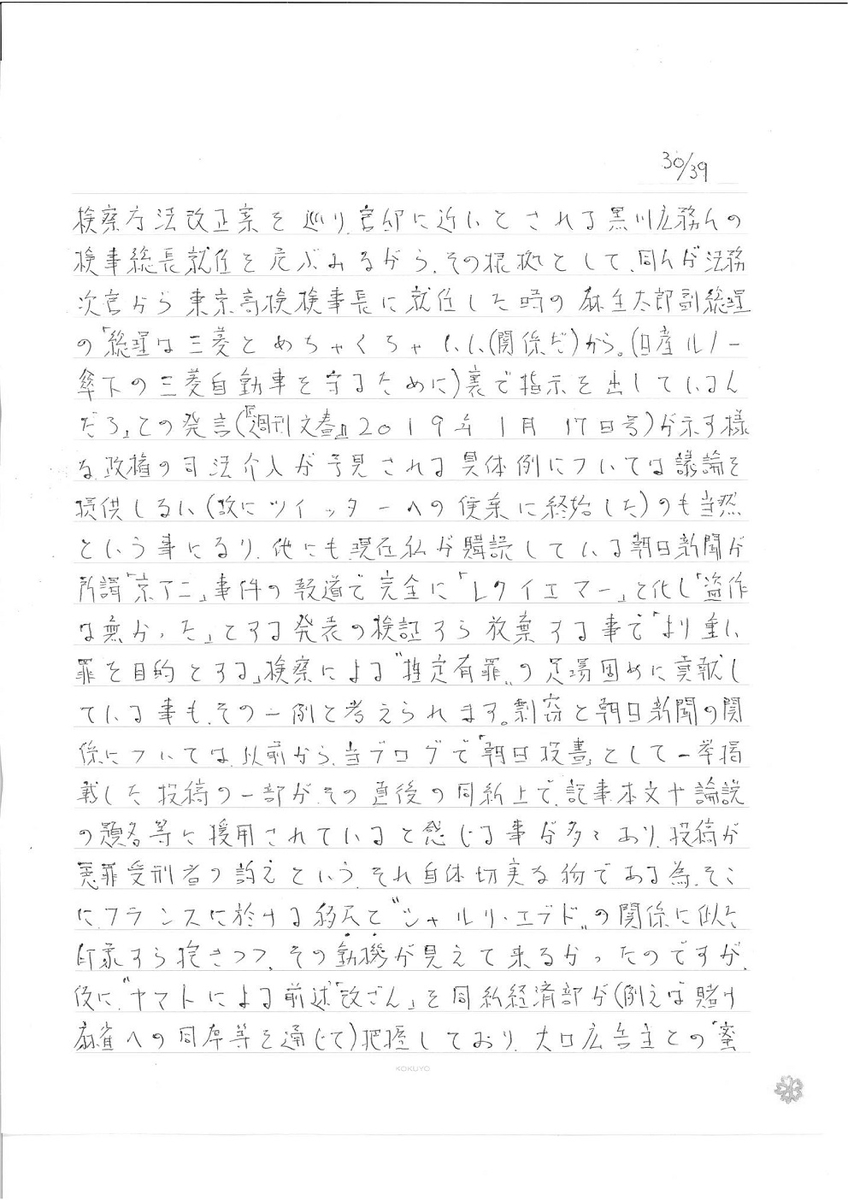 30/39
検察庁法改正案を巡り、官邸に近いとされる黒川広務氏の
検事総長就任を危ぶみながら、その根拠として、同氏が法務
次官から東京高検検事長に就任した時の麻生太郎副総理
の「総理は三菱とめちゃくちゃいい(関係だ)から。(日産ルノー
傘下の三菱自動車を守るために)裏で指示を出しているん
だろ」との発言(『週刊文春』2019年1月17日号)が示す様
な政権の司法介入が予見される具体例については議論を
提供しない(故にツイッターへの便乗に終始した)のも当然
という事になり、他にも現在私が購読している朝日新聞が
所謂「京アニ」事件の報道で完全に「レクイエマー」と化し「盗作
は無かった」とする発表の検証すら放棄する事で「より重い
罪を目的とする」検察による“推定有罪”の足場固めに貢献し
ている事も、その一例と考えられます。剽窃と朝日新聞の関
係については、以前から、当ブログで「朝日投書」として一挙掲
載した投稿の一部が、その直後の同紙上で、記事本文や論説
の題名等に援用されていると感じる事が多々あり、投稿が
冤罪受刑者の訴えという、それ自体切実な物である為、そこ
に、フランスに於ける移民と“シャルリ・エブド”の関係に似た
印象すら抱きつつ、その動機が見えて来なかったのですが、
仮に、“ヤマトによる前述「改ざん」を同紙経済部が(例えば賭け
麻雀への同席等を通じて)把握しており、大口広告主との「蜜
KOKUYO